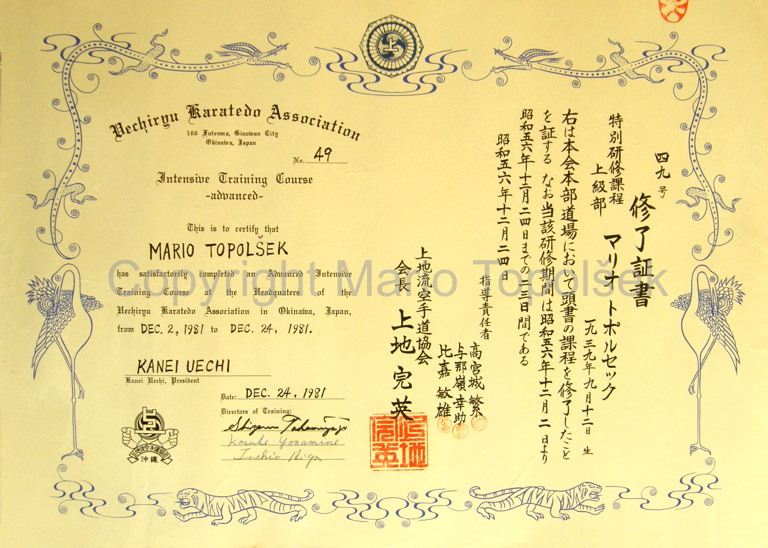 Uechiryu Karatedo Association
166 Futenma, Ginowan City
Okinawa, Japan
No. 49
Intensive Training Course
-advanced-
This is to certify that
MARIO TOPOLŠEK
has satisfactorily completed an Advanced Intensive
Training Course at the Headquaters of the
Uechiryu Karatedo Association in Okinawa, Japan,
from DEC. 2, 1981 to DEC. 24, 1981.
KANEI UECHI
Kanei Uechi, President
Date: DEC. 24, 1981
Directors of Training:
Shigeru Takamiyagi
Kosuke Yonamine
Toshio Higa
沖縄
四九号
修了証書
特別研修課程
上級部
マリオ トポルセック
一九三九年九月十二日 生
右は本会本部道場において頭書の課程を修了したこと
を証する なお当該研修期間は昭和五六年十二月二日より
昭和五六年十二月二四日までの二三日間である
昭和五六年十二月二四日
指導責任者
高宮城 繁
与那嶺 幸助
比嘉 敏雄
上地流空手道協会
会長 上地完英
上地完英
Copyright Mario Topolšek